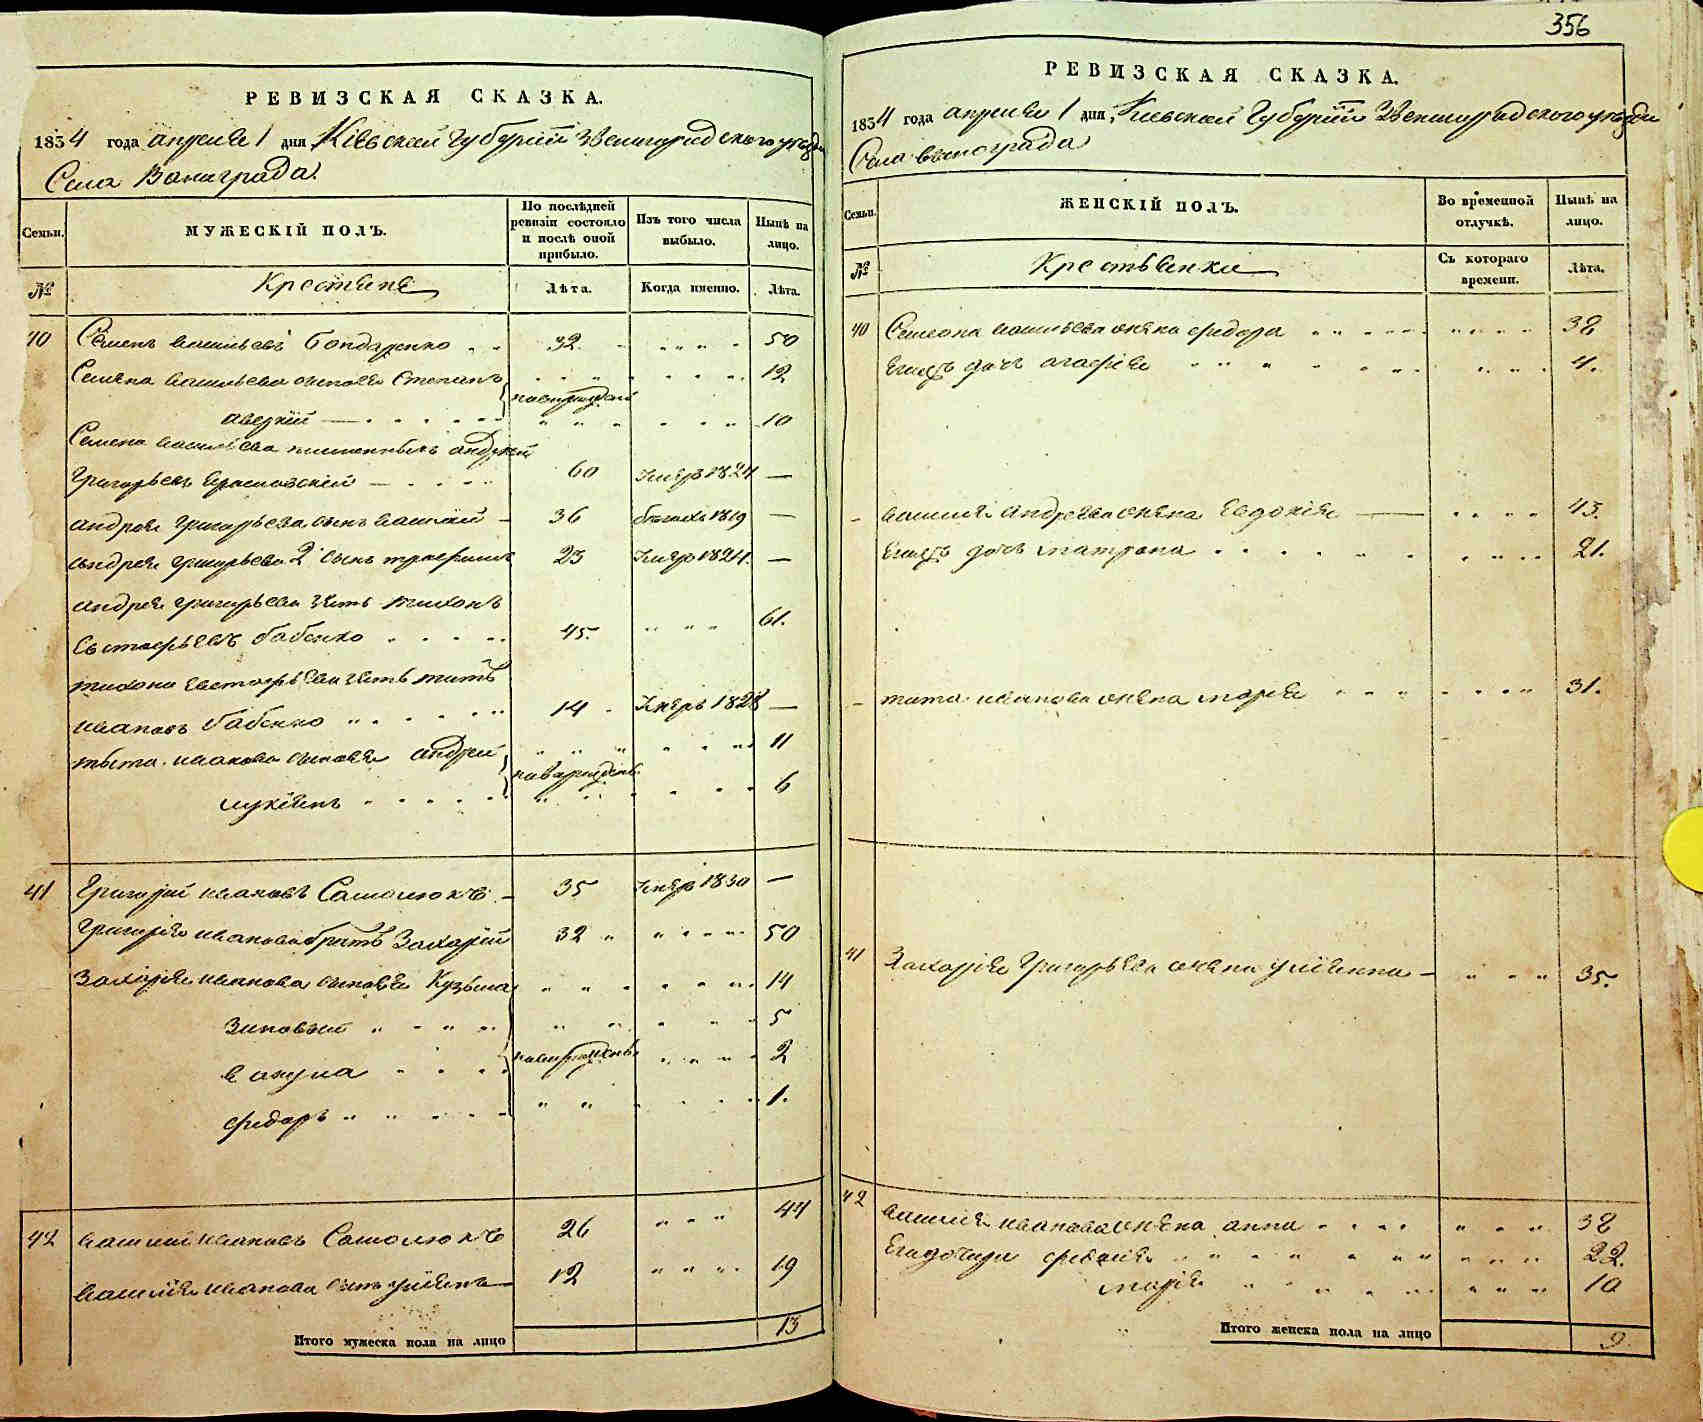 РЕВИЗСКАЯ СКАЗКА.
1834 года апреля 1 дня Кіевской Губернiи Звенигородского уезда
Села Винаграда.
Семьи.
МУЖЕСКІЙ ПОЛЪ.
По послѣдней ревизіи состояло и послѣ оной прибыло.
Изъ того числа выбыло.
Нынѣ на лицо.
№
Крестяне
Лѣта.
Когда именно.
Лѣта.
40 Семенъ васильевъ Бондаренко 32 50
Семена васильева сыновья Степанъ 12
новорожден
аверкій 10
Семена васильева андрей
Григорьевъ 60 1824 —
андрея григорьева сынъ василий 36 1819 —
андрея григорьева 2 сынъ трофимъ 23 1824. —
андрея григорьева зять тихонъ
Бабенко 45. 61.
тихона зять титъ
ивановъ бабенко 14 1828 —
тита иванова сыновья андрей 11
новорожден
лукіянъ 6
41 Григорій ивановъ Самолюкъ 35 1830 —
Григорія иванова братъ Захарій 32 50
Захарія иванова сыновья Кузьма 14
Зиновий 5
новорожден
вакула 2
федоръ 1.
42 василий ивановъ Самолюкъ 26 44
василія иванова сынъ уліянъ 12 19
Итого мужеска пола на лицо 13
356
РЕВИЗСКАЯ СКАЗКА.
1834 года апреля 1 дня, Киевской Губернiи Звенигородского уезда
Села винограда
Семьи.
ЖЕНСКІЙ ПОЛЪ.
Во временной отлучкѣ.
Нынѣ на лицо.
№
Крестьянки
Съ котораго времени.
Лѣта.
40 Симеона васильева жена федора 38
Егожъ дочь агафія 4.
василія андреева жена Евдокія 43.
Егожъ дочь матрона 21.
тита иванова жена марія 31.
41 Захарія Григорьева жена уліянна 35.
42 василія иванова жена анна 38
Егодочери 22.
марія 10
Итого женска пола на лицо 9